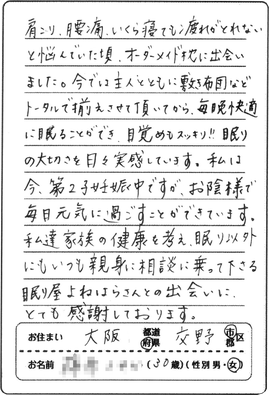 肩こり、腰痛、いくら寝ても疲れがとれない
と悩んでいた頃、オーダーメイド枕に出会い
ました。今では主人とともに敷き布団など
トータルで揃えさせて頂いてから、毎晩快適
に眠ることができ、目覚めもスッキリ!!眠り
の大切さを日々実感しています。私は
今、第2子妊娠中ですが、お陰様で
毎日元気に過ごすことができています。
私達家族の健康を考え、眠り以外
にもいつも親身に相談に乗って下さる
眠り屋よねはらさんとの出会いに、
とても感謝しております。
お住まい 大阪 都道府県 交野 市郡区
お名前 (30歳)(性別 男・女)